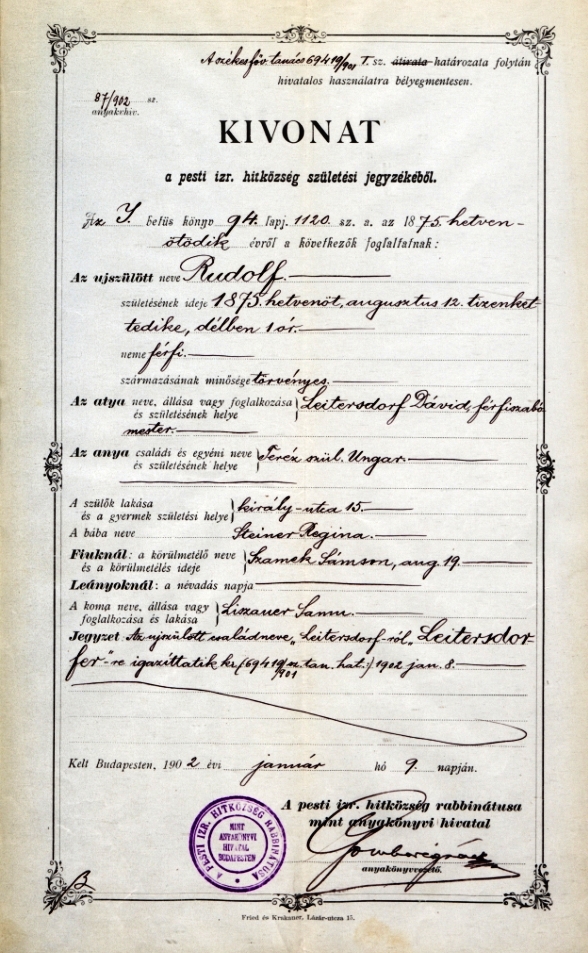 A székesfőv. tanács 69419/901 I. sz. átirata határozata folytán
hivatalos használatra bélyegmentesen.
87/902 sz.
anyakvhiv.
KIVONAT
a pesti izr. hitközség születési jegyzékéből.
Az I. betűs könyv 94. lapj. 1120. sz. a. az 1875. hetven-
ötödik évről a következők foglaltatnak:
Az ujszülött neve Rudolf.
születésének ideje 1875. hetvenöt, augusztus 12. tizenket
tedike, délben 1 ór.
neme férfi.
származásának minősége törvényes.
Az atya neve, állása vagy foglalkozása és születésének helye } Leitersdorf Dávid, férfiszabó
mester.
Az anya családi és egyéni neve és születésének helye } Teréz szül. Ungar.
A szülők lakása és a gyermek születési helye } király-utca 15.
A bába neve Steiner Regina.
Fiuknál: a körülmetélő neve és a körülmetélés ideje } Szamek Sámson, aug 19.
Leányoknál: a névadás napja
A koma neve, állása vagy foglalkozása és lakása } Liszauer Samu.
Jegyzet: Az ujszülött családneve „Leitersdorf-ról „Leitersdor
fer"-re igazíttatik ki (69419/901 sz. tan. hat.) 1902 jan. 8.
Kelt Budapesten, 1902 évi január hó 9. napján.
A pesti izr. hitközség rabbinátusa
mint anyakönyvi hivatal
anyakönyvvezető.
A PESTI IZR. HITKÖZSÉG RABBINÁTUSA
MINT
ANYAKÖNYVI
HIVATAL
BUDAPESTEN
B
Fried és Krakauer, Lázár-utcza 15.